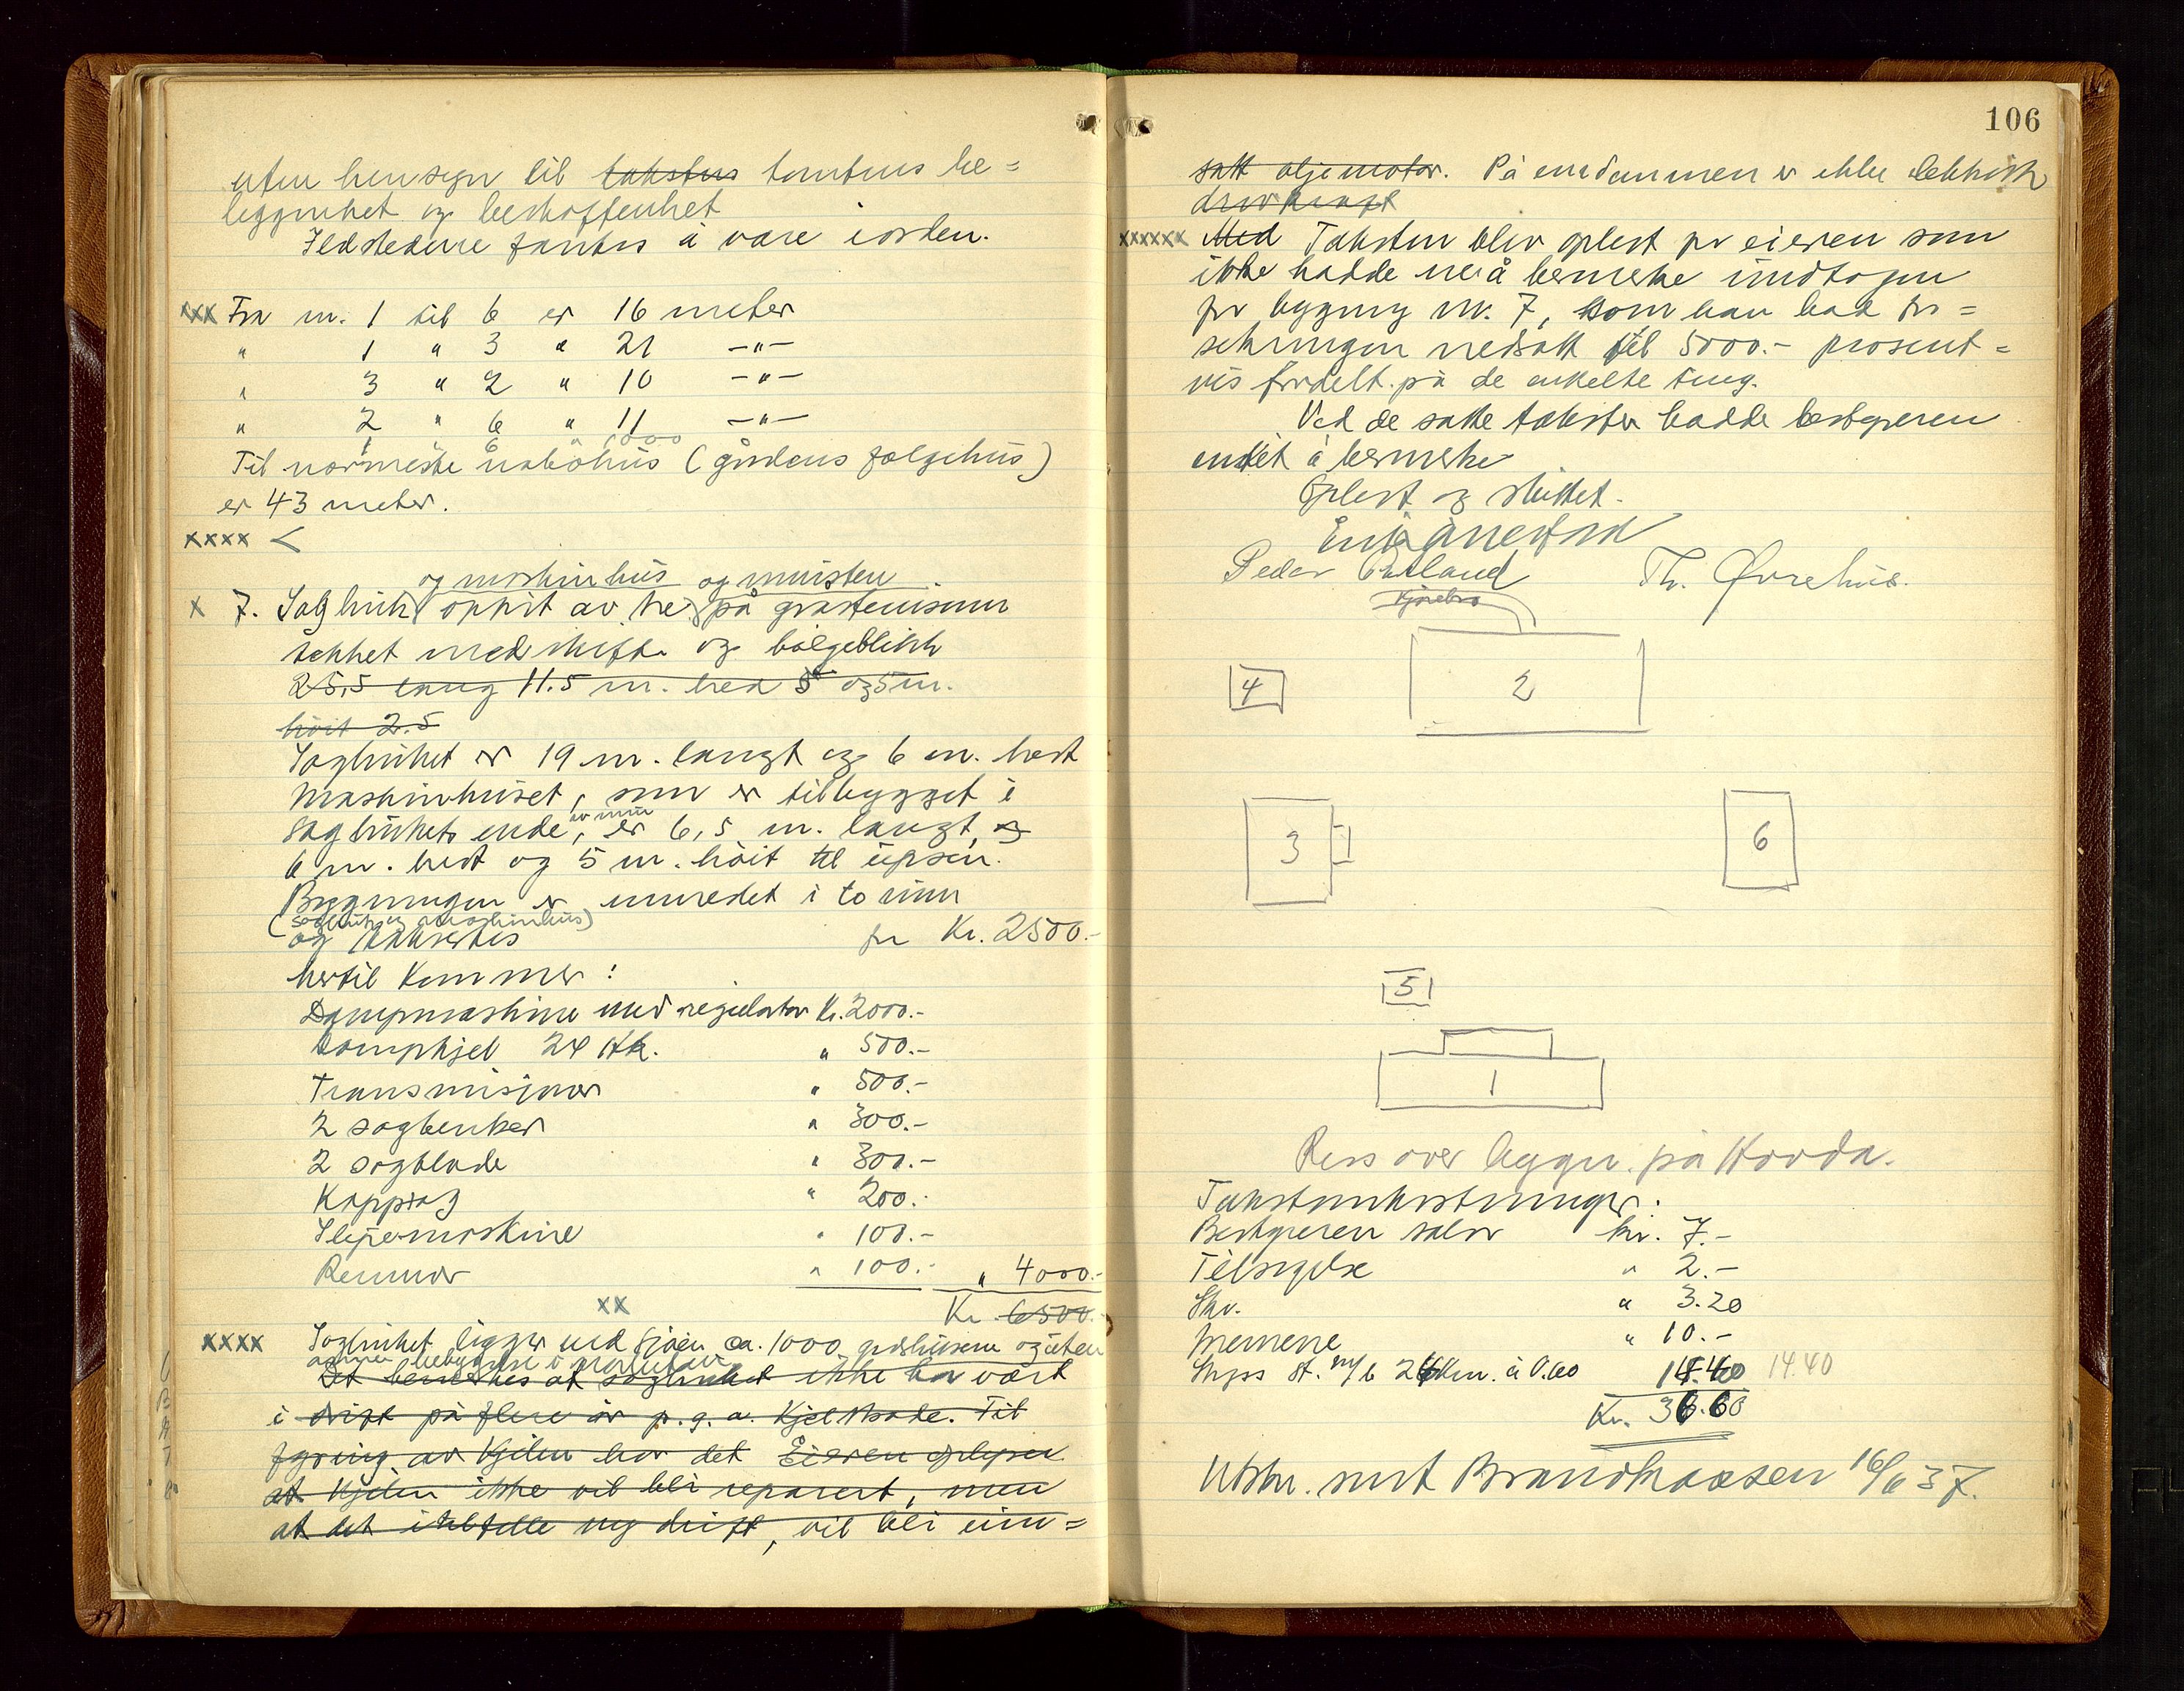 uten hensyn til takstens tomtens be=
liggenhet og beskaffenhet
Ildstedene fantes å være iorden.
xxx Fra nr. 1 til 6 er 16 meter
" 1 " 3 " 21 -"-
" 3 " 2 " 10 -"-
" 2 " 6 " 11 -"-
Til nærmeste nabohus (gårdens følgehus)
er 43 meter.
xxxx <
og maskinhus og mursten
x 7. Sagbruk opført av tre på gråstensmur
tekket med skifer og bølgeblikk
25,5 lang 11.5 m. bred 5 og 5 m.
høit 2.5
Sagbruket er 19 m. langt og 6 m. bredt
Maskinhuset, som er tilbygget i
sagbrukets ende, av mur er 6,5 m. langt, og
6 m. bredt og 5 m. høit til upsen.
Bygningen er innredet i to rum
(sagbruk og maskinhus)
og takseres for Kr. 2500.-
hertil kommer:
Dampmaskine med regulator Kr. 2000.-
Dampkjel 24 Hk. " 500.-
Transmisjoner " 500.-
2 sagbenker " 300.-
2 sagblade " 300.-
Kappsag " 200.-
Slipemaskine " 100.-
Remmer " 100.- " 4000.-
xx Kr. 6500.-
xxxx Sagbruket ligger ved sjøen ca. 1000 gårdshusene og uten
annen bebyggelse i nærheten
Det bemerkes at sagbruket ikke har vært
i drift på flere år p.g.a. Kjelskade. Til
fyring av Kjelen har det Eieren oplyser
at Kjelen ikke vil bli reparert, men
at det i tilfelle ny drift, vil bli inn=
106
satt oljemotor. På eiendommen er ikke elektrisk
drivkraft
xxxxxx Med Taksten blev oplest for eieren som
ikke hadde noe å bemerke undtagen
for bygning nr. 7, som han bad for=
sikringen nedsatt til 5000.- prosent=
vis fordelt på de enkelte ting.
Ved de satte takster hadde bestyreren
intet å bemerke
Oplest og sluttet.
Peder Th. Øvrehus.
4
2
3
6
5
1
Riss over bygn. på Hovda.
Takstomkostninger:
Bestyreren salær kr. 7.-
Tilsigelse " 2.-
Skr. " 3.20
Mennene " 10.-
Skyss st. m/b 24 Km. à 0.60 14.40 14.40
Kr. 36.60
Utskr. sent Brandkassen 16/6 37.